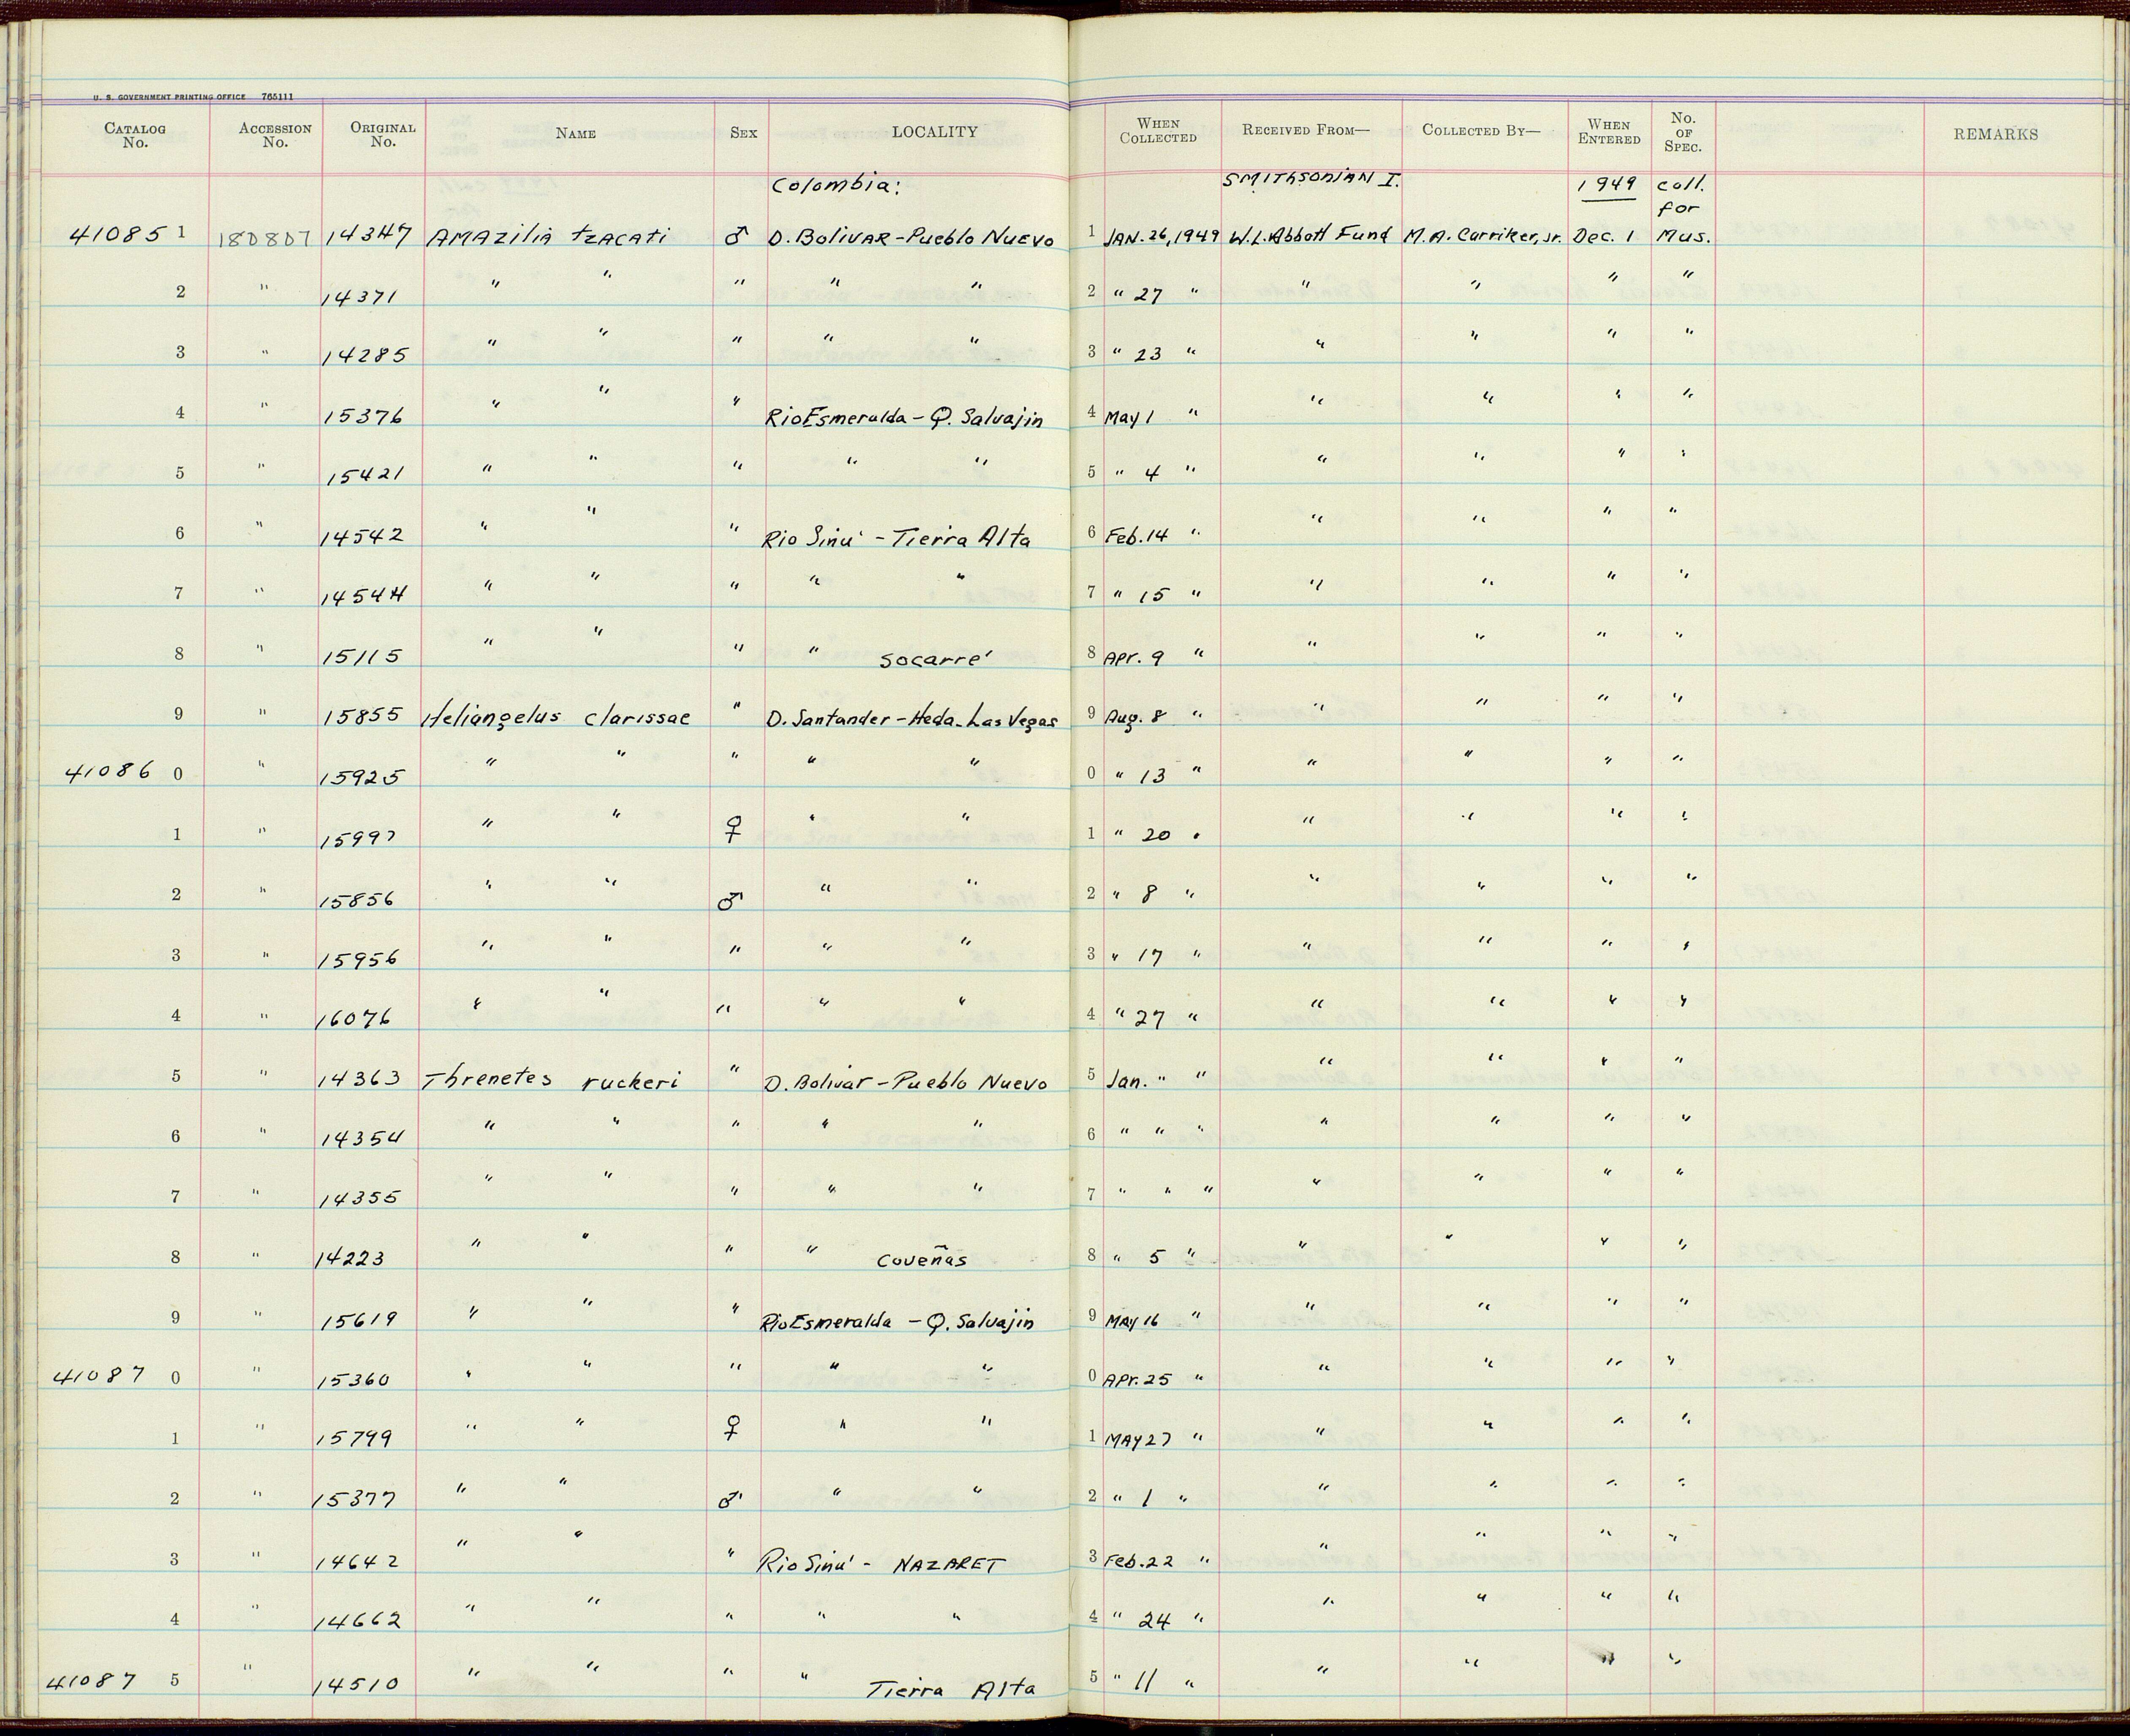 U. S. GOVERNMENT PRINTING OFFICE 765111
CATALOG No. ACCESSION No. ORIGINAL No. NAME SEX LOCALITY WHEN COLLECTED RECEIVED FROM— COLLECTED BY— WHEN ENTERED No. OF SPEC. REMARKS
Colombia: SMITHSONIAN I. 1949 coll. for
41085 1 180807 14347 AMAZilia tzacati ♂ D. BoliVAR - Pueblo Nuevo 1 JAN. 26, 1949 W.L. Abbott Fund M.A. Carriker, Jr. Dec. 1 Mus.
2 " 14371 " " " " " 2 " 27 " " " " "
3 " 14285 " " " " " 3 " 23 " " " " "
4 " 15376 " " " Rio Esmeralda - Q. Salvajin 4 May 1 " " " " "
5 " 15421 " " " " " 5 " 4 " " " " "
6 " 14542 " " " Rio Sinú - Tierra Alta 6 Feb. 14 " " " " "
7 " 14544 " " " " " 7 " 15 " " " " "
8 " 15115 " " " " Socarré 8 Apr. 9 " " " " "
9 " 15855 Heliangelus clarissae " D. Santander - Heda. Las Vegas 9 Aug. 8 " " " " "
41086 0 " 15925 " " " " " 0 " 13 " " " " "
1 " 15997 " " ♀ " " 1 " 20 " " " " "
2 " 15856 " " ♂ " " 2 " 8 " " " " "
3 " 15956 " " " " " 3 " 17 " " " " "
4 " 16076 " " " " " 4 " 27 " " " " "
5 " 14363 Threnetes ruckeri " D. Bolivar - Pueblo Nuevo 5 Jan. " " " " " "
6 " 14354 " " " " " 6 " " " " " " "
7 " 14355 " " " " " 7 " " " " " " "
8 " 14223 " " " " Coveñas 8 " 5 " " " " "
9 " 15619 " " " Rio Esmeralda - Q. Salvajin 9 MAY 16 " " " " "
41087 0 " 15360 " " " " " 0 APr. 25 " " " " "
1 " 15799 " " ♀ " " 1 MAY 27 " " " " "
2 " 15377 " " ♂ " " 2 " 1 " " " " "
3 " 14642 " " " Rio Sinú - NAZARET 3 Feb. 22 " " " " "
4 " 14662 " " " " " 4 " 24 " " " " "
41087 5 " 14510 " " " " Tierra Alta 5 " 11 " " " " "